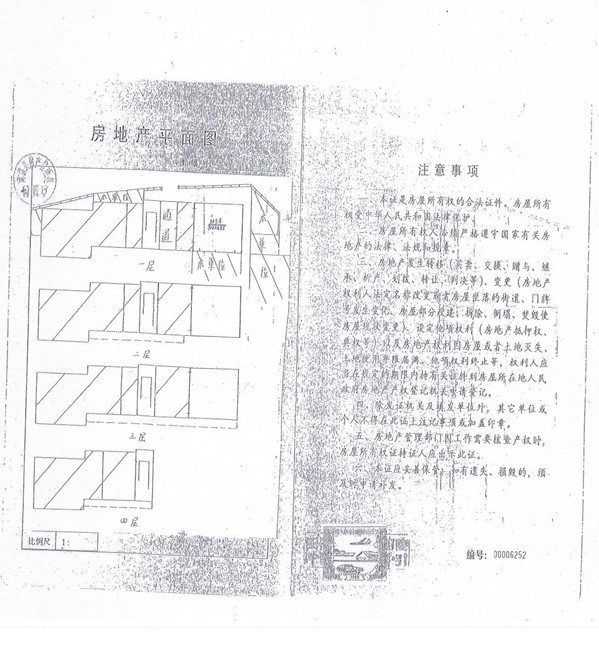 房地产平面图
通
道
本
单
位
本单位
一层
二层
三层
四层
比例尺 1:
注意事项
一、本证是房屋所有权的合法证件。房屋所有
权受中华人民共和国法律保护。
二、房屋所有权人必须严格遵守国家有关房
地产的法律、法规和规章。
三、房地产发生转移（买卖、交换、赠与、继
承、析产、划拨、转让、判决等）、变更（房地产
权利人法定名称改变或者房屋坐落的街道、门牌
号发生变化、房屋部分改建、拆除、倒塌、焚毁使
房屋现状变更）、设定他项权利（房地产抵押权、
典权等）以及房地产权利因房屋或者土地灭失、
土地使用年限届满、他项权利终止等，权利人应
当在规定的期限内持有关证件到房屋所在地人民
政府房地产产权登记机关申请登记。
四、除发证机关及填发单位外，其它单位或
个人不得在此证上注记事项或加盖印章。
五、房地产管理部门因工作需要核查产权时，
房屋所有权证持证人应出示此证。
六、本证应妥善保管，如有遗失、损毁的，须
及时申请补发。
编号：00006252